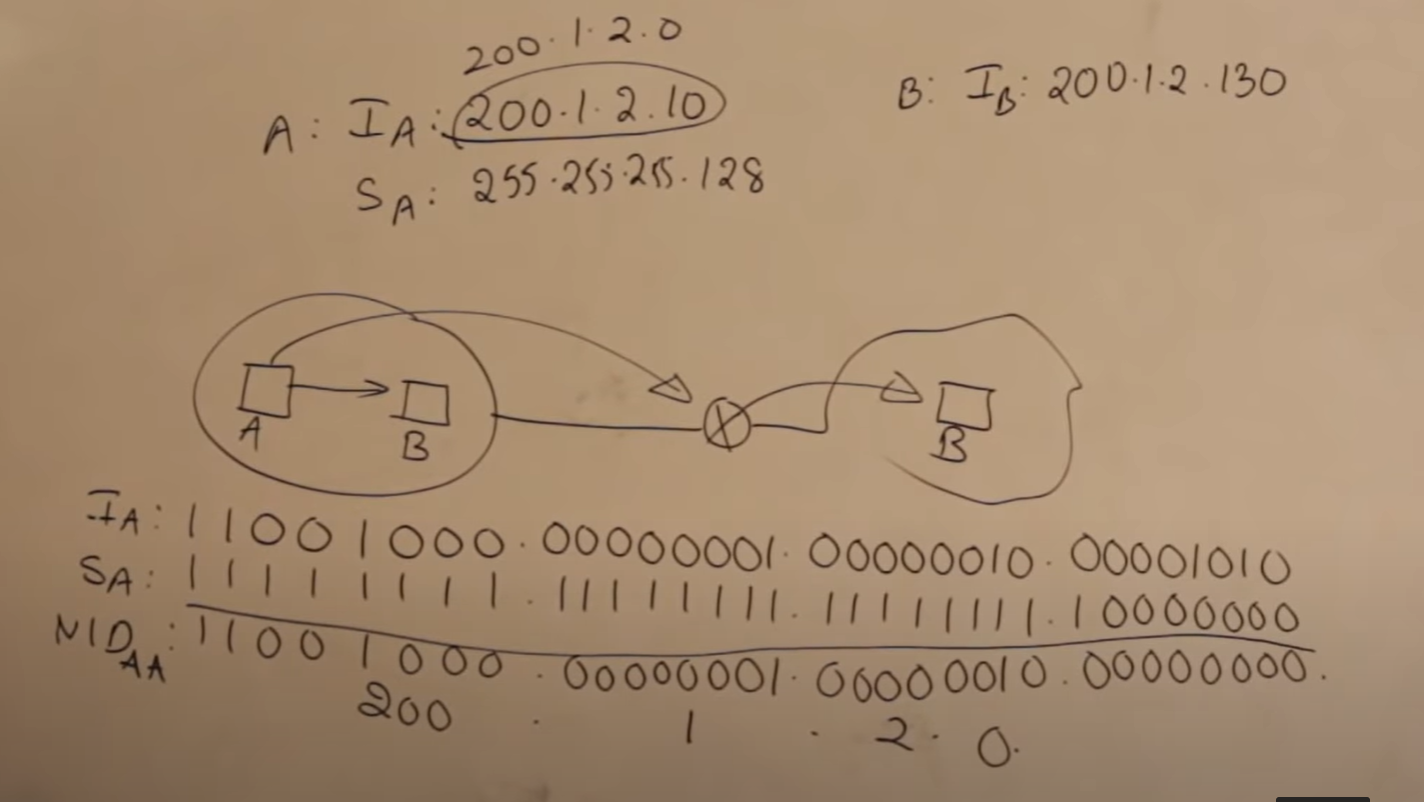 200.1.2.0
A: IA: 200.1.2.10
SA: 255.255.255.128
B: IB: 200.1.2.130
A
B
B
IA: 11001000.00000001.00000010.00001010
SA: 11111111.11111111.11111111.10000000
NIDAA: 11001000.00000001.00000010.00000000.
200.1.2.0.